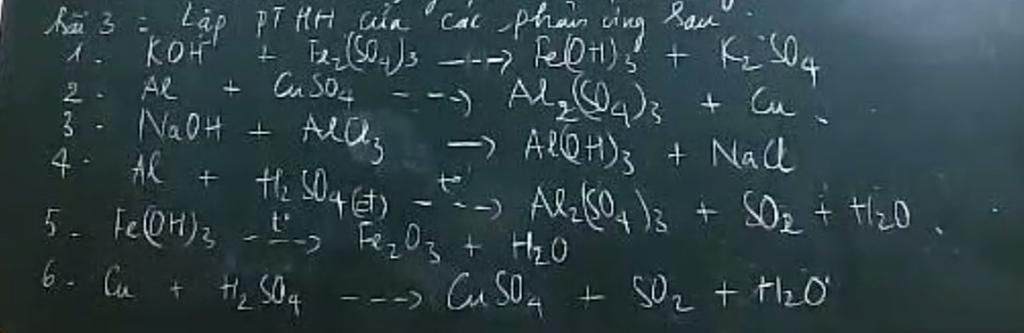 Bài 3 : Lập PTHH của các phản ứng sau.
1. KOH + Fe₂(SO₄)₃ ---> Fe(OH)₃ + K₂SO₄
2. Al + CuSO₄ ---> Al₂(SO₄)₃ + Cu.
3. NaOH + AlCl₃ → Al(OH)₃ + NaCl
4. Al + H₂SO₄(đ) --t°-> Al₂(SO₄)₃ + SO₂ + H₂O.
5. Fe(OH)₃ --t°-> Fe₂O₃ + H₂O
6. Cu + H₂SO₄ ---> CuSO₄ + SO₂ + H₂O